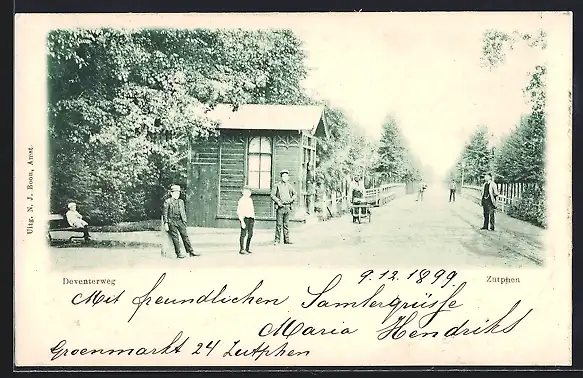 Uitg. N. J. Boon, Amst.
Deventerweg
Zutphen
9.12.1899
Mit freundlichen Samtergrüsse
Maria Hendriks
Groenmarkt 24 Zutphen